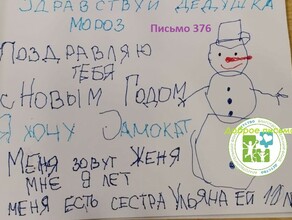 ЗДРАВСТВУЙ ДЕДУШКА
МОРОЗ
Письмо 376
ПОЗДРАВЛЯЮ
ТЕБЯ
С НОВЫМ ГОДОМ
Я ХОЧУ САМОКАТ
МЕНЯ ЗОВУТ ЖЕНЯ
МНЕ 9 ЛЕТ
МЕНЯ ЕСТЬ СЕСТРА УЛЬЯНА ЕЙ 10